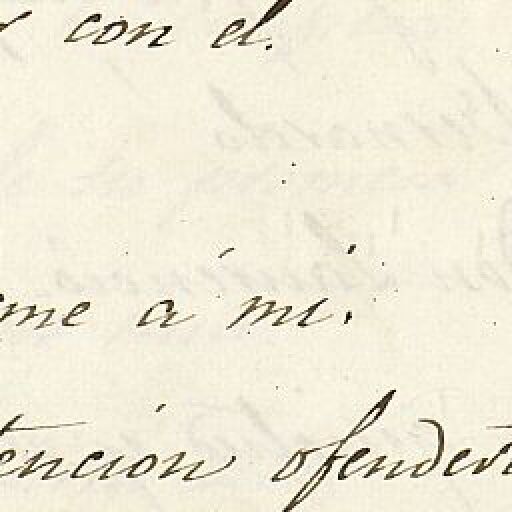 con el.
me á mi.
tencion ofendert